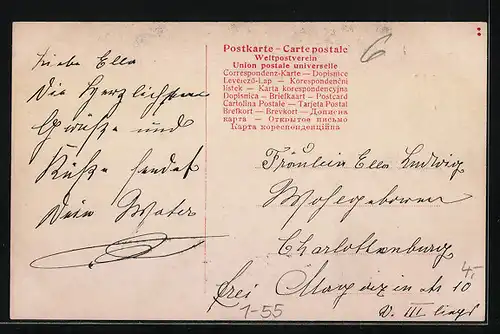 Liebe Ella
Die Herzlichsten
Grüße und
Küße sendet
Dein Vater
Postkarte – Carte postale
Weltpostverein
Union postale universelle
Correspondenz-Karte — Dopisnice
Levelező-Lap — Korespondenční
listek — Karta korespondencyjna
Dopisnica — Briefkaart — Postcard
Cartolina Postale — Tarjeta Postal
Brefkort — Brevkort — Дописна
карта — Открытое письмо
Карта кореспонденційна
6
Fräulein Ella Ludwig
Wohlgeboren
Charlottenburg
4.-
frei
10
III
1-55